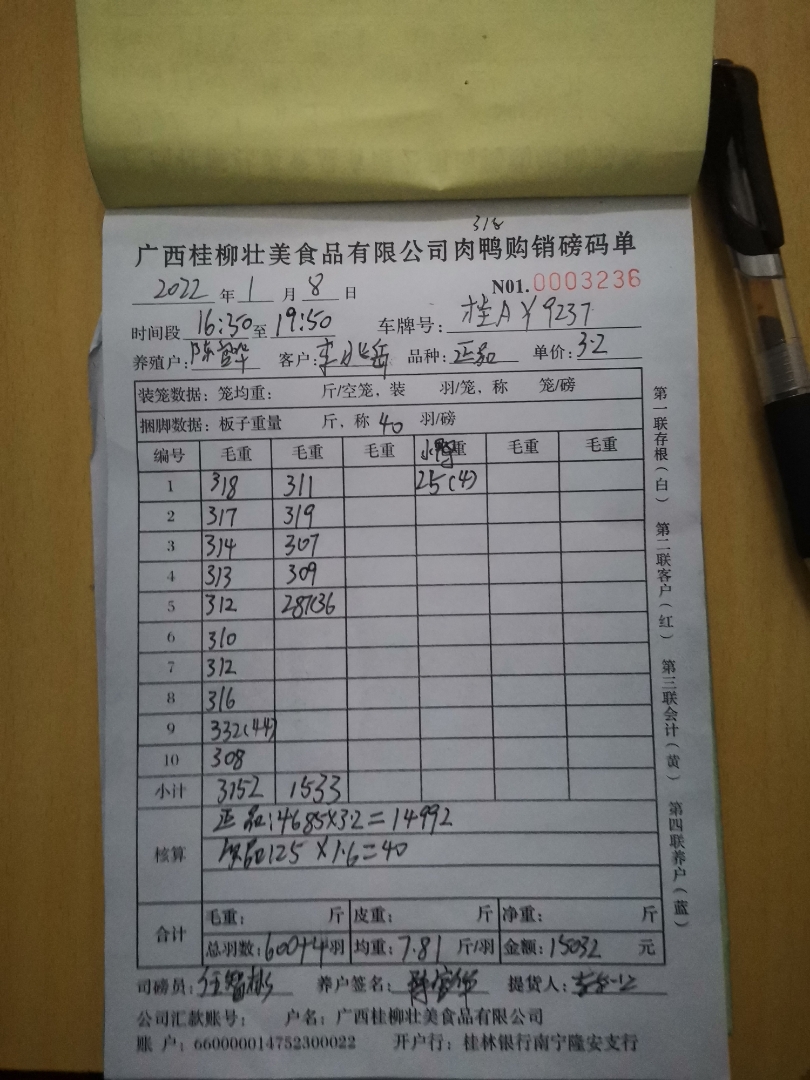 318
广西桂柳壮美食品有限公司肉鸭购销磅码单
2022 年 1 月 8 日 N01.0003236
时间段 16:50 至 19:50 车牌号: 桂AY9237
养殖户: 客户: 品种: 正品 单价: 3.2
装笼数据: 笼均重: 斤/空笼, 装 羽/笼, 称 笼/磅
捆脚数据: 板子重量 斤, 称 40 羽/磅
编号 毛重 毛重 毛重 毛重 毛重
1 318 311 25(4)
2 317 319
3 314 307
4 313 309
5 312 287(36
6 310
7 312
8 316
9 332(44)
10 308
小计 3152 1533
核算
正品:4685×3.2=14992
25×1.6=40
合计
毛重: 斤 皮重: 斤 净重: 斤
总羽数: 600+4 羽 均重: 7.81 斤/羽 金额: 15032 元
司磅员: 养户签名: 提货人:
公司汇款账号: 户名: 广西桂柳壮美食品有限公司
账 户: 660000014752300022 开户行: 桂林银行南宁隆安支行
第一联存根(白) 第二联客户(红) 第三联会计(黄) 第四联养户(蓝)